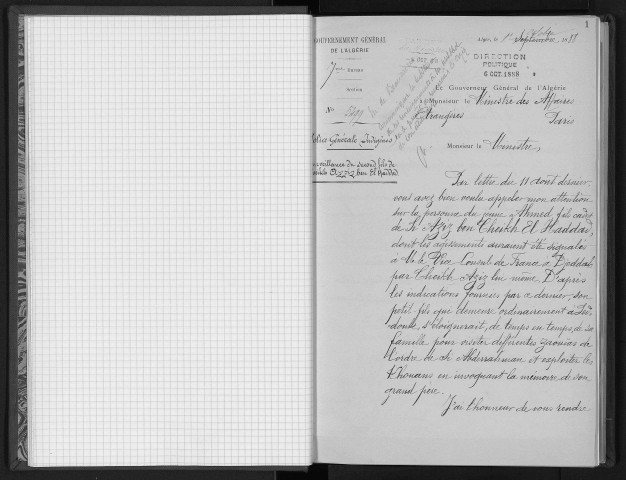 1
GOUVERNEMENT GÉNÉRAL
DE L'ALGÉRIE
7me Bureau
Section
No
Police Générale Indigènes
Surveillance du second fils de
Aziz ben El Haddad
Alger, le 1er Octobre 1888
DIRECTION
POLITIQUE
6 OCT. 1888
Le Gouverneur Général de l'Algérie
à Monsieur le Ministre des Affaires
Etrangères Paris
Monsieur le Ministre,
Par lettre du 11 Août dernier,
vous avez bien voulu appeler mon attention
sur la personne du jeune Ahmed fils cadet
de Si Aziz ben Cheikh El Haddad,
dont les agissements auraient été signalés
à M. le Vice Consul de France à Djeddah
par Cheikh Aziz lui même. D'après
les indications fournies par ce dernier, son
petit fils qui demeure ordinairement à
s'éloignerait, de temps en temps, de sa
famille pour visiter différentes zaouias de
l'ordre de Si Abderrahman et exploiter les
Khouans en invoquant la mémoire de son
grand père.
J'ai l'honneur de vous rendre